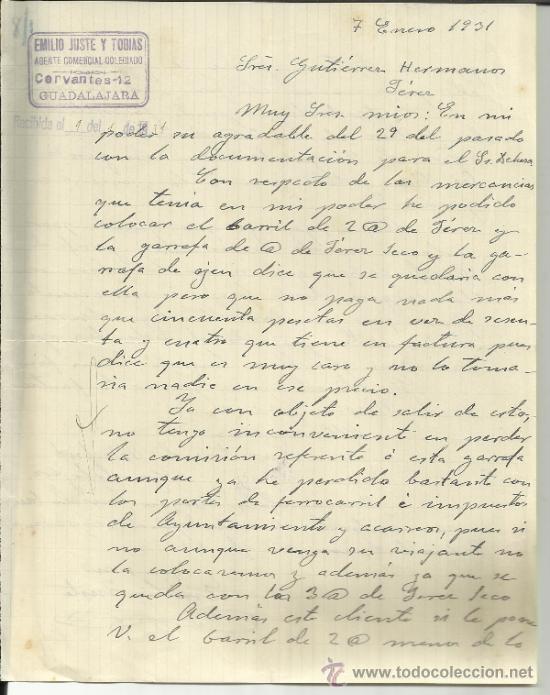 7 Enero 1931
EMILIO JUSTE Y TOBIAS
AGENTE COMERCIAL COLEGIADO
Cervantes-12
GUADALAJARA
Recibida el 9 del 1 de 1931
Sres. Gutiérrez Hermanos
Jérez
Muy Sres. mios: En mi
poder su agradable del 29 del pasado
con la documentación para el Sr.
Con respecto de las mercancias
que tenia en mi poder he podido
colocar el barril de 2 @ de Jérez y
la garrafa de @ de Jérez Seco y la ga-
rrafa de ojen dice que se quedaria con
ella pero que no paga nada más
que cincuenta pesetas en vez de sesen-
ta y cuatro que tiene en factura pues
dice que es muy caro y no lo toma-
ria nadie en ese precio.
Yo con objeto de salir de esto,
no tengo inconveniente en perder
la comisión referente á esta garrafa
aunque ya he perdido bastante con
los portes de ferrocarril é impuestos
de Ayuntamiento y acarreos, pues si
no aunque venga su viajante no
la colocaremos y además ya que se
queda con los 3 @ de Jerez Seco
Además este cliente si le pone
V. el barril de 2 @ menos de lo
www.todocoleccion.net